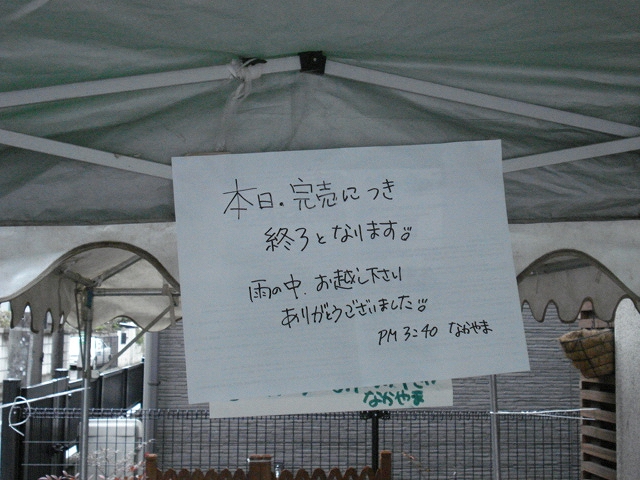 本日・完売につき
終了となります
雨の中、お越し下さり
ありがとうございました
PM 3:40 なかやま
なかやま